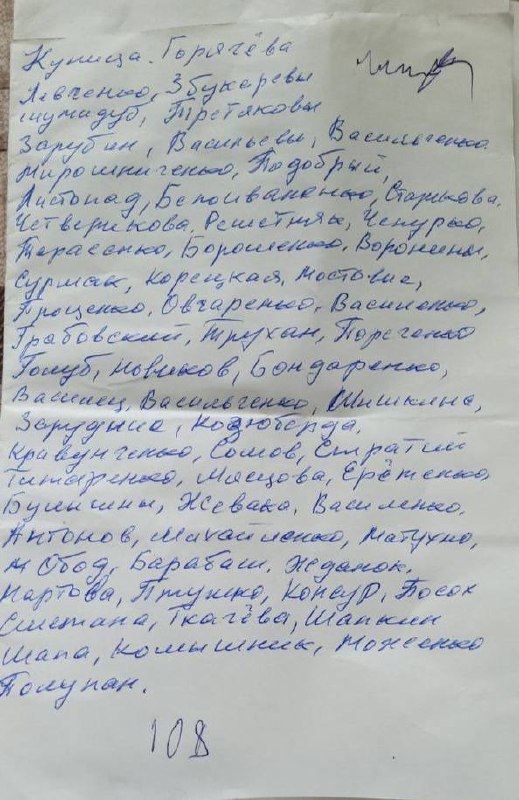 Куница. Горячёва
Левченко, Збукаревы
Шумидуб, Третяковы
Зарубин, Васильевы, Васильченко
Мирошниченко, Подобрый,
Листопад, Белоиваненко, Старкова,
Четверикова, Решетняк, Чепурко,
Тарасенко, Борошенко, Воронины,
Сурмак, Корецкая, Мостовые,
Проценко, Овчаренко, Василенко,
Грабовский, Трухан, Порсченко
Голуб, Новиков, Бондаренко,
Василец, Васильченко, Шишкина,
Зарудние, Козюберда,
Кравченко, Сомов, Стратий
Титаренко, Мясцова, Ерёменко,
Булигины, Жевака, Василенко,
Антонов, Михайленко, Матухно,
Обод, Барабаш, Жданок,
Мартова, Птушко, Консур, Посох
Сметана, Ткачёва, Шапкин
Шапа, Комышник, Моженко
Полупан.
108